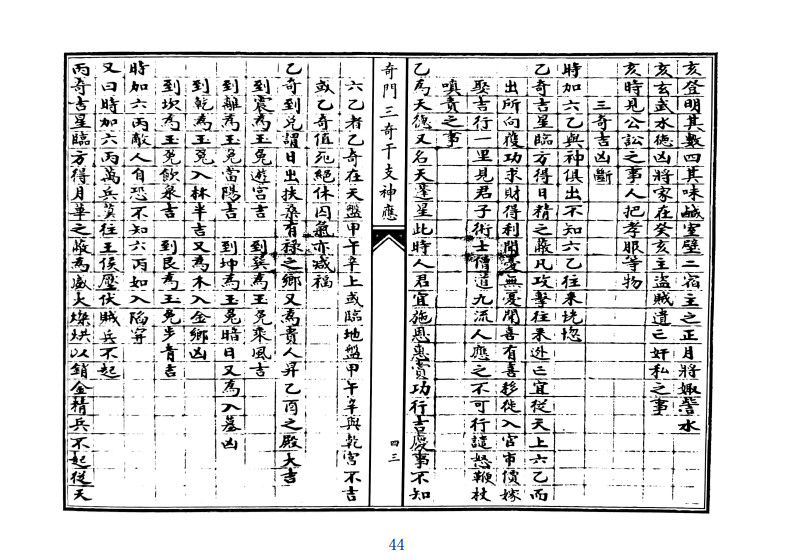 亥登明其數四其味鹹室壁二宿主之正月將娵訾水
亥玄武水德凶將家在癸亥主盜賊遺亡奸私之事
亥時見公訟之事人把孝服等物
三奇吉凶斷
時加六乙與神俱出不知六乙往來恍惚
乙奇吉星臨方得日精之蔽凡攻擊往來逃亡宜從天上六乙而
出所向獲功求財得利聞憂無憂聞喜有喜移徙入官市價嫁
娶吉行一里見君子術士僧道九流人應之不可行譴怒鞭杖
嗔責之事
乙為天德又名天蓬星此時人君宜施恩惠賞功行吉慶事不知
奇門三奇干支神應
四三
六乙者乙奇在天盤甲午辛上或臨地盤甲午辛與乾宮不吉
或乙奇值死絕休囚氣亦減福
乙奇到兌謂日出扶桑有祿之鄉又為貴人昇乙酉之殿大吉
到震為玉兔遊宮吉 到巽為玉兔乘風吉
到離為玉兔當陽吉 到坤為玉兔暗日又為入墓凶
到乾為玉兔入林半吉又為木入金鄉凶
到坎為玉兔飲泉吉 到艮為玉兔步青吉
時如六丙敵人自恐不知六丙如入陷穽
又曰時加六丙萬兵莫往王侯壓伏賊兵不起
丙奇吉星臨方得月華之蔽為威火燦烘以銷金精兵不起從天
44